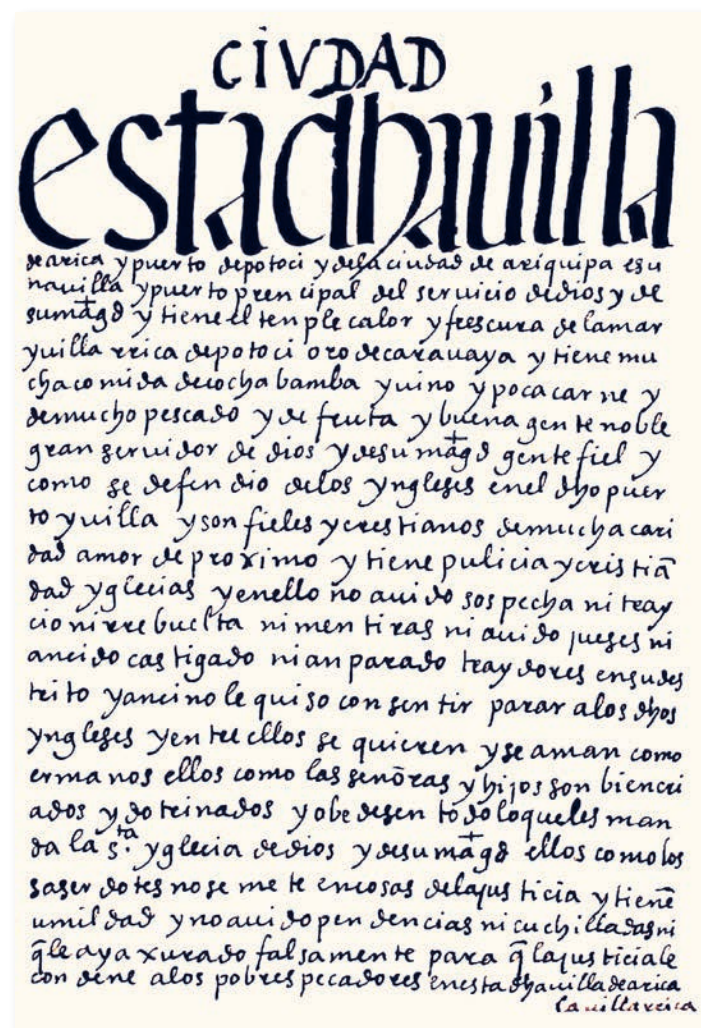 CIVDAD
esta dha uilla
de arica y puerto de potoci y de la ciudad de ariquipa es u
na uilla y puerto prencipal del servicio de dios y de
su mag.d y tiene el tenple calor y frescura de la mar
y uilla rrica de potoci oro de carauaya y tiene mu
cha comida de cochabamba y uino y poca carne y
de mucho pescado y de fruta y buena gente noble
gran seruidor de dios y de su mag.d gente fiel y
como se defendio de los yngleses en el dho puer
to y uilla y son fieles y crestianos de mucha cari
dad amor de proximo y tiene pulicia y cristiā
dad yglecias y en ello no auido sospecha ni tray
cion ni rrebuelta ni mentiras ni auido jueses ni
an cido castigado ni an parado traydores en su des
trito y anci no le quiso consentir parar a los dhos
yngleses y entre ellos se quieren y se aman como
ermanos ellos como las senōras y hijos son bien cri
ados y dotrinados y obedesen todo lo que les man
da la s.ta yglecia de dios y de su mag.d ellos como los
saserdotes no se mete en cosas de la justicia y tienē
umildad y no auido pendencias ni cuchilladas ni
q̄ le aya xurado falsamente para q̄ la justicia le
condene a los pobres pecadores en esta dha uilla de arica
la uilla rrica